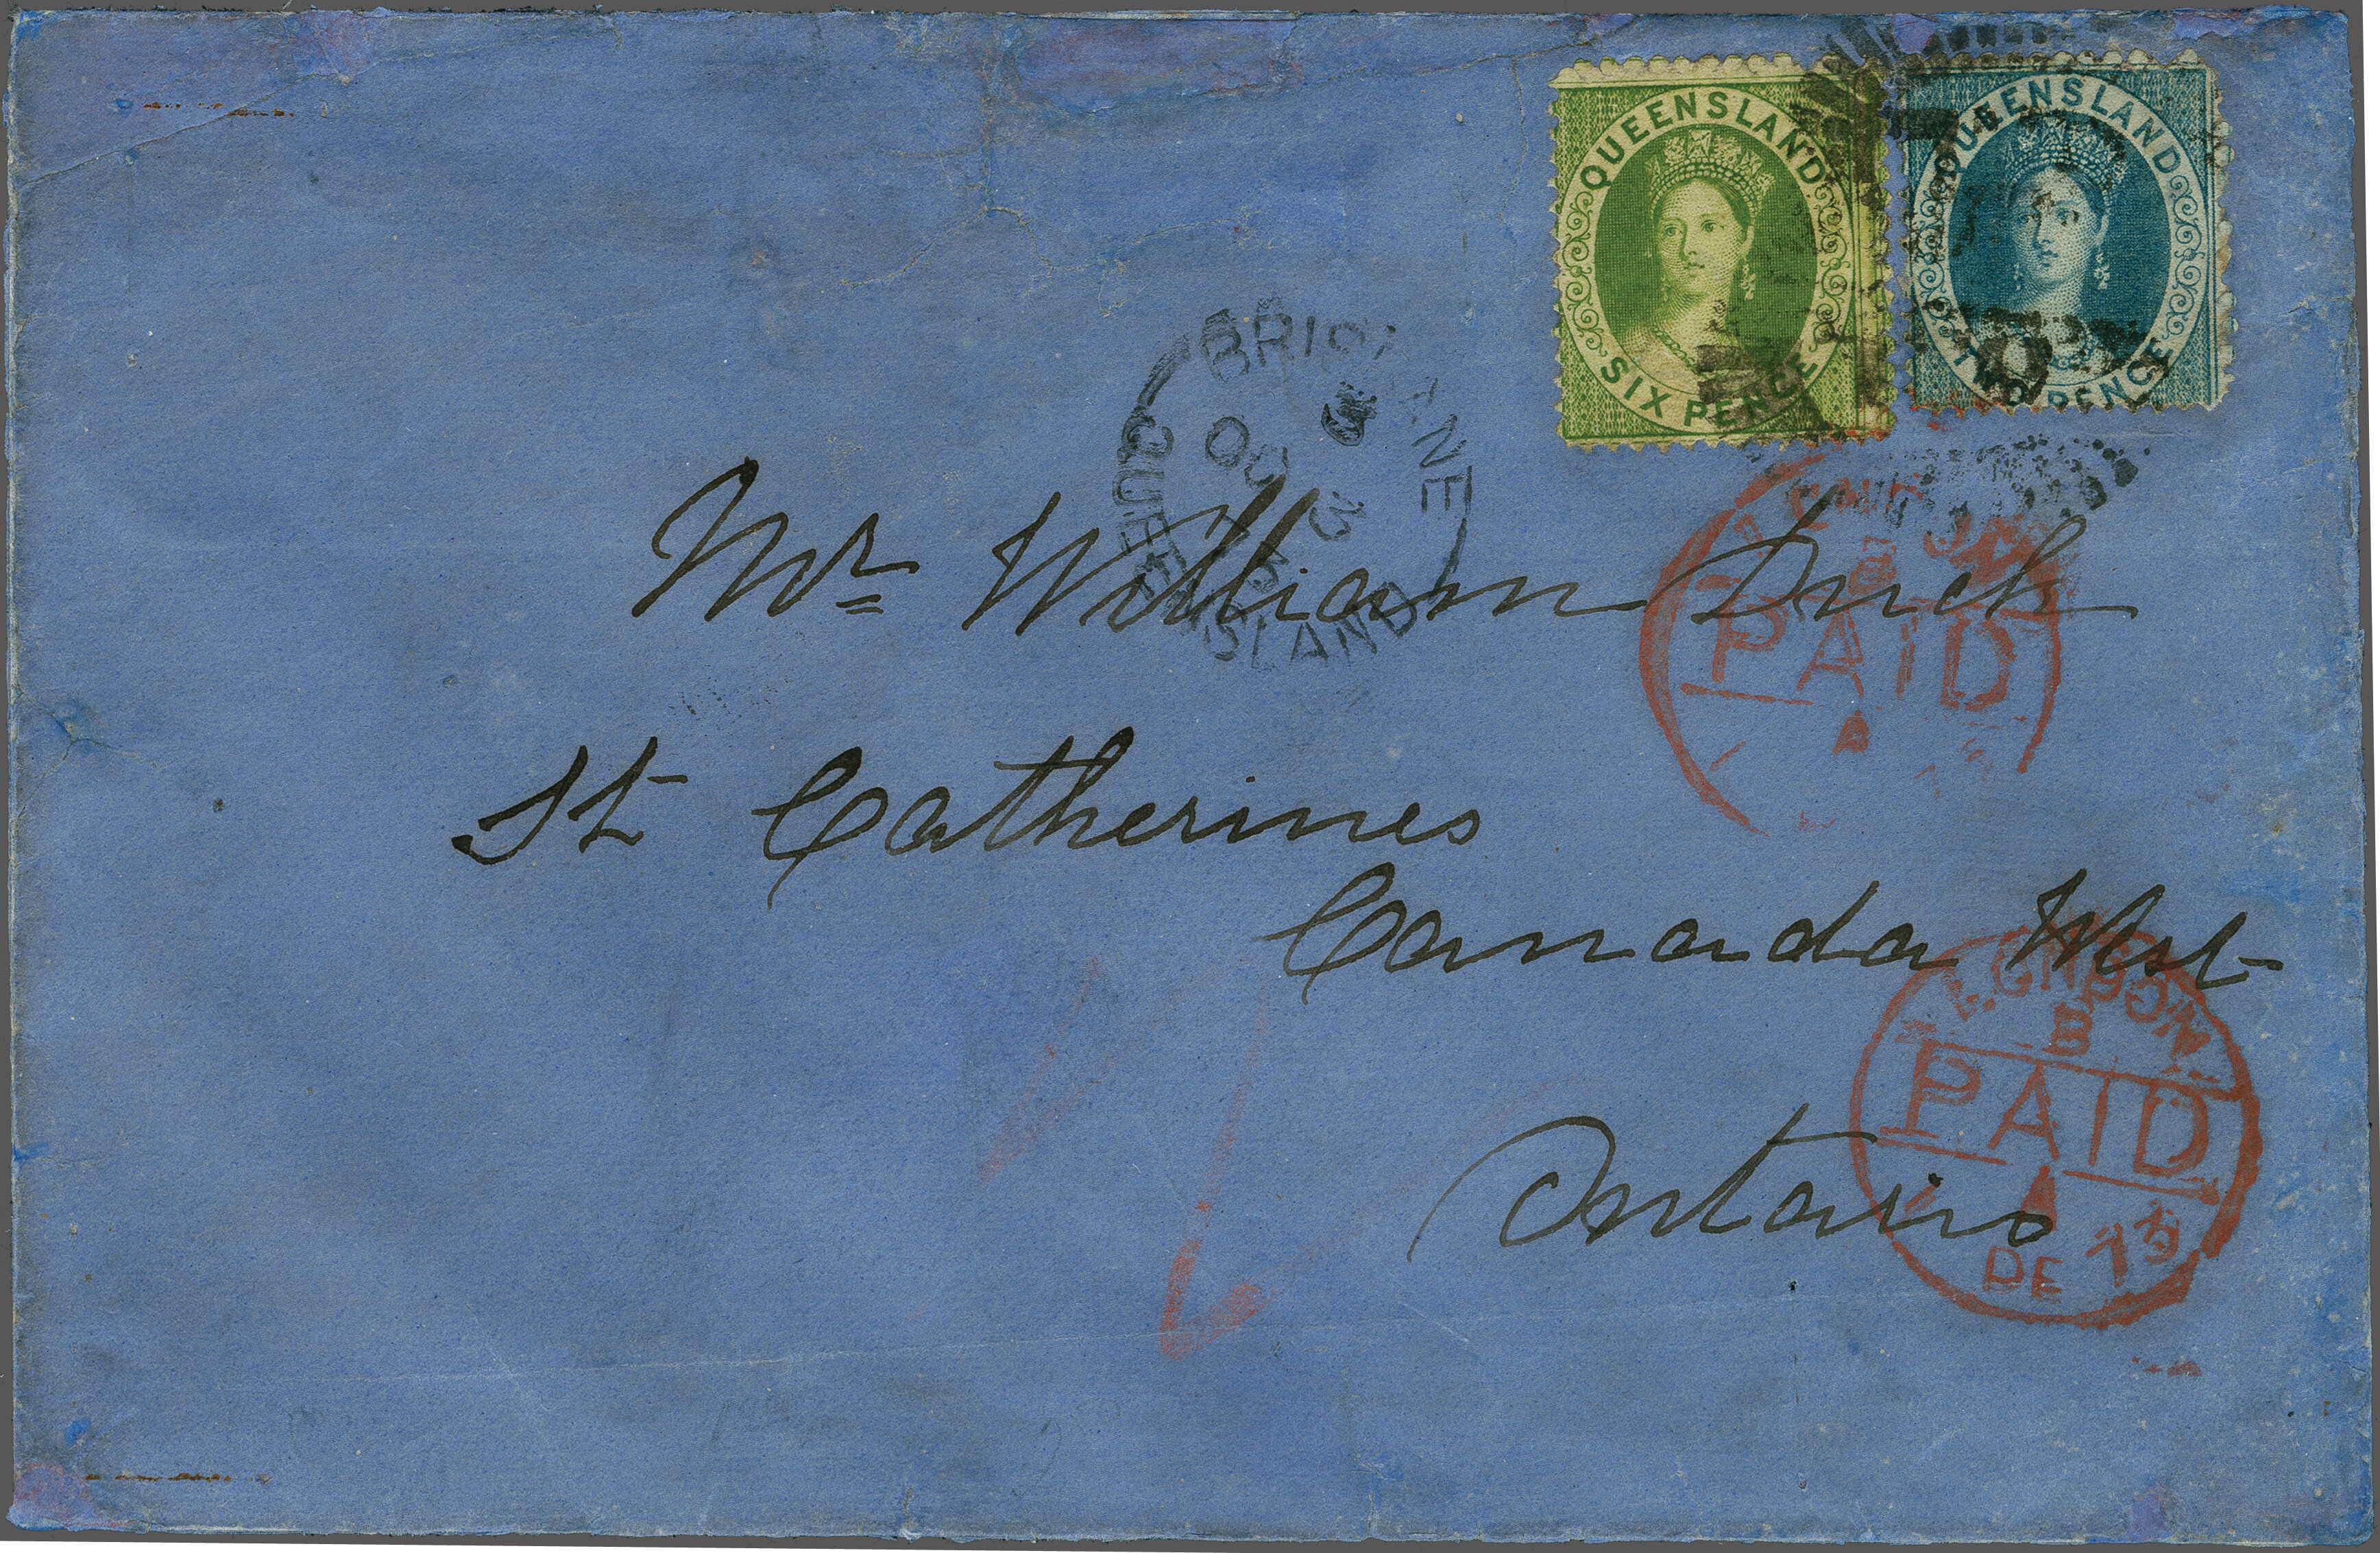 QUEENSLAND
SIX PENCE
QUEENSLAND
TWO PENCE
BRISBANE
OC 3
73
QUEENSLAND
Mr William
St Catherines
Canada West
Ontario
PAID
LONDON
B
PAID
DE 73